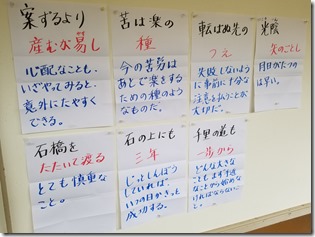 案ずるより
産むが易し
心配なことも、
いざやってみると、
意外にたやすく
できる。
苦は楽の
種
今の苦労は
あとで楽をする
ための種のよう
なものだ。
転ばぬ先の
つえ
失敗しないよう
に事前に十分な
注意を払うことが
大切だ。
光陰
矢のごとし
月日がたつの
は早い。
石橋を
たたいて渡る
とても慎重な
こと。
石の上にも
三年
じっとしんぼう
していれば、
いつの日かきっと
成功する。
千里の道も
一歩から
どんな大きな
こともまず手近
なことから始めな
ければならない